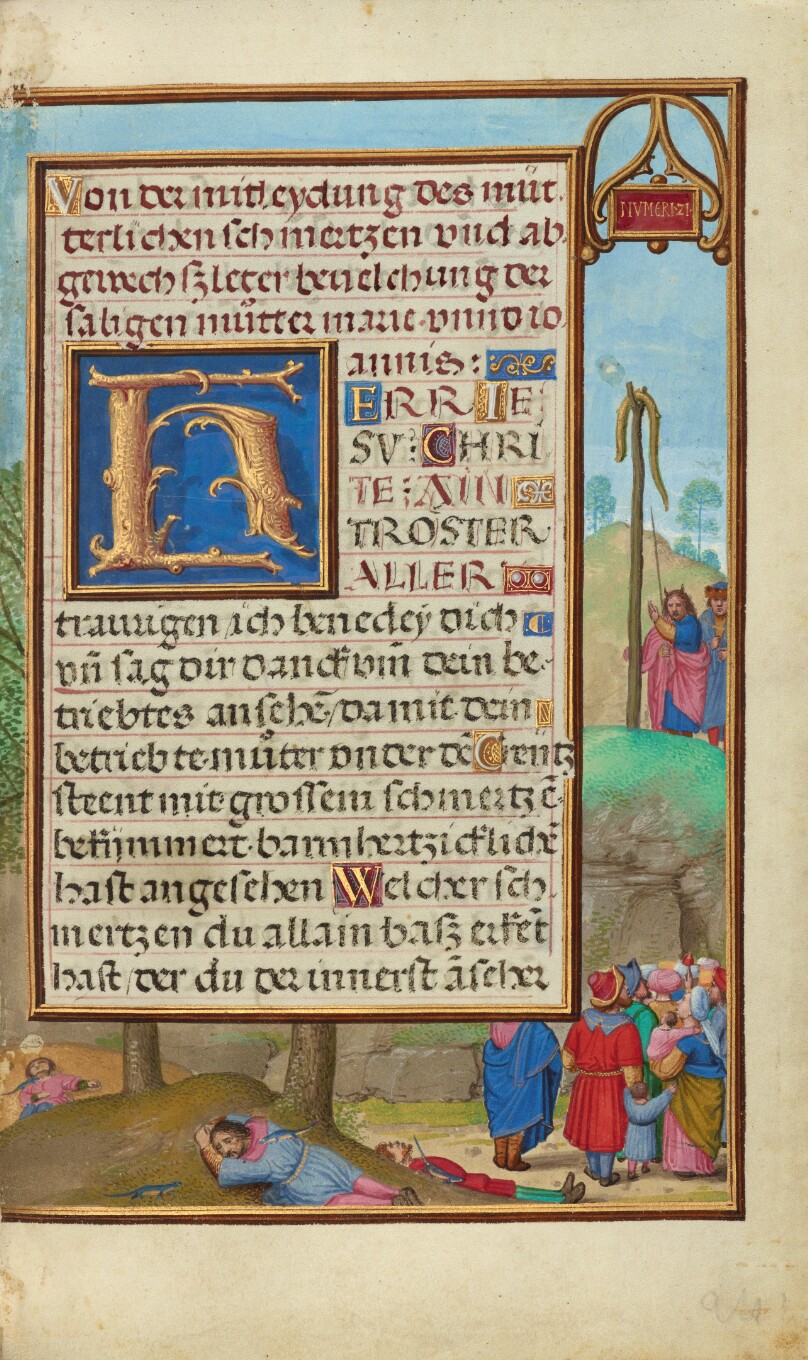 Von der mitleydung des müt.
terlichen schmertzen vnd ab
gewechszleter beuelchung der
saligen mütter marie vnnd io
annis:
HERR IE
SV: CHRI
TE: AIN
TROSTER
ALLER
traurigen / ich benedey dich
vn̄ sag dir danck vm̄ dein be-
triebtes ansehē / da mit dein
betriebte mütter vnder dē Creütz
steent mit grossem schmertzē
bekümmert barmhertzicklichē
hast angesehen Welcher sch
mertzen du allain basz erkēt
hast / der du der innerst āseher
NVMERI·21·